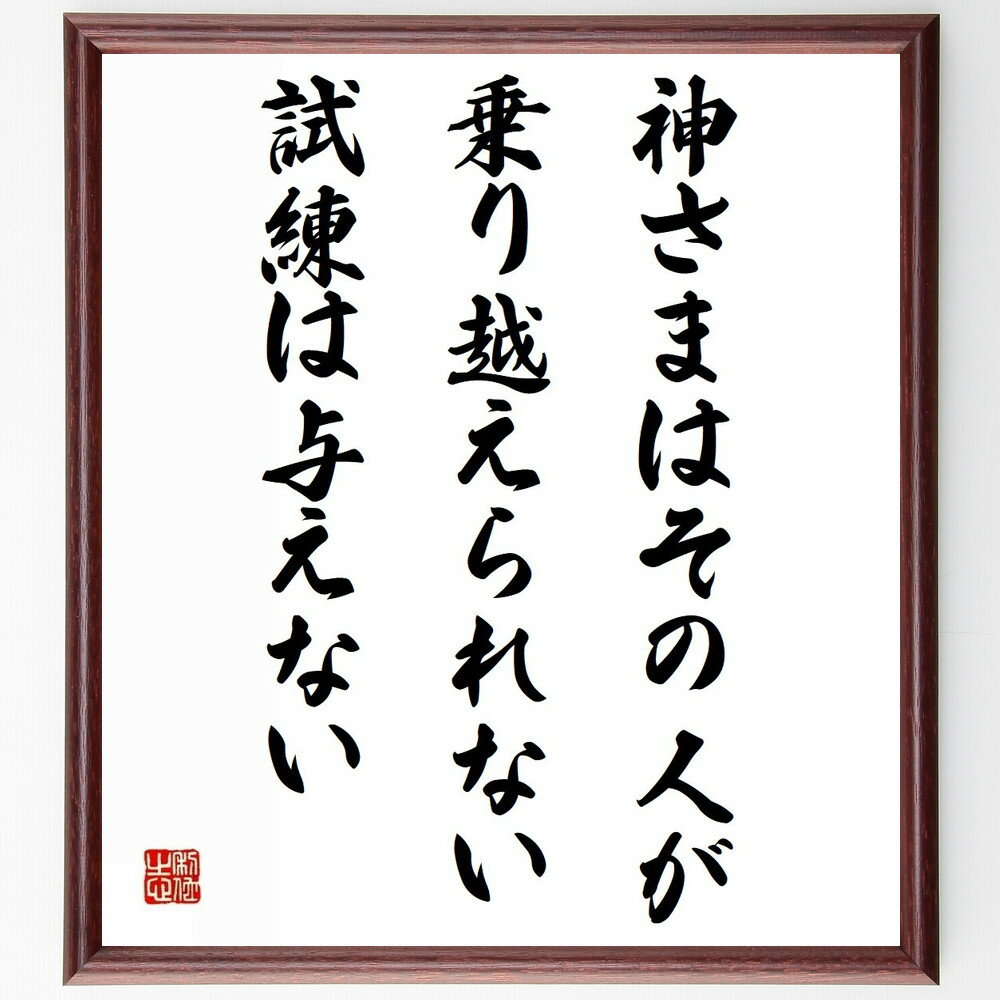 神さまはその人が
乗り越えられない
試練は与えない